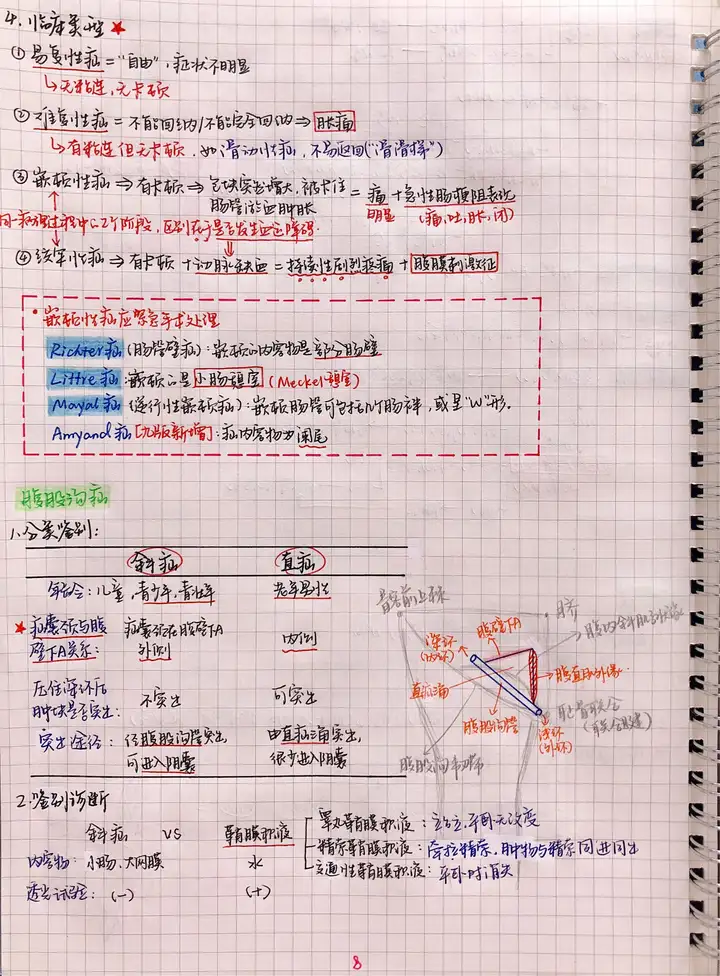 4. 临床类型 ★
① 易复性疝 = "自由", 症状不明显
↳ 无粘连, 无卡顿
② 难复性疝 = 不能回纳/不能完全回纳 ⇒ 胀痛
↳ 有粘连但无卡顿, 如滑动性疝, 不易返回("滑滑梯")
③ 嵌顿性疝 ⇒ 有卡顿 ⇒ 包块突然增大, 被卡住 = 痛 + 急性肠梗阻表现
肠管淤血肿胀 明显 (痛, 吐, 胀, 闭)
同一病理过程中的2个阶段, 区别在于是否发生血运障碍
④ 绞窄性疝 ⇒ 有卡顿 + 动脉缺血 = 持续性剧烈疼痛 + 腹膜刺激征
• 嵌顿性疝应紧急手术处理
Richter疝 (肠管壁疝): 嵌顿的内容物是部分肠壁
Littre疝: 嵌顿的是小肠憩室 (Meckel憩室)
Mayal疝 (逆行性嵌顿疝): 嵌顿肠管可包括几个肠袢, 或呈"W"形.
Amyand疝 [九版新增]: 疝内容物为阑尾
腹股沟疝
1. 分类鉴别:
斜疝 直疝
年龄: 儿童, 青少年, 青壮年 老年男性
★ 疝囊颈与腹 疝囊颈在腹壁下A 内侧
壁下A关系: 外侧
压住深环后 不突出 可突出
肿块是否突出:
突出途径: 经腹股沟管突出, 由直疝三角突出,
可进入阴囊 很少进入阴囊
髂前上棘
脐
腹壁下A
深环
(内环)
直疝三角
腹直肌外缘
腹股沟管
浅环
(外环)
耻骨联合
腹股沟韧带
2. 鉴别诊断
斜疝 VS 鞘膜积液
睾丸鞘膜积液: 站立, 平卧无改变
精索鞘膜积液: 牵拉精索, 肿物与精索同进同出
交通性鞘膜积液: 平卧时消失
内容物: 小肠、大网膜 水
透光试验: (-) (+)
8